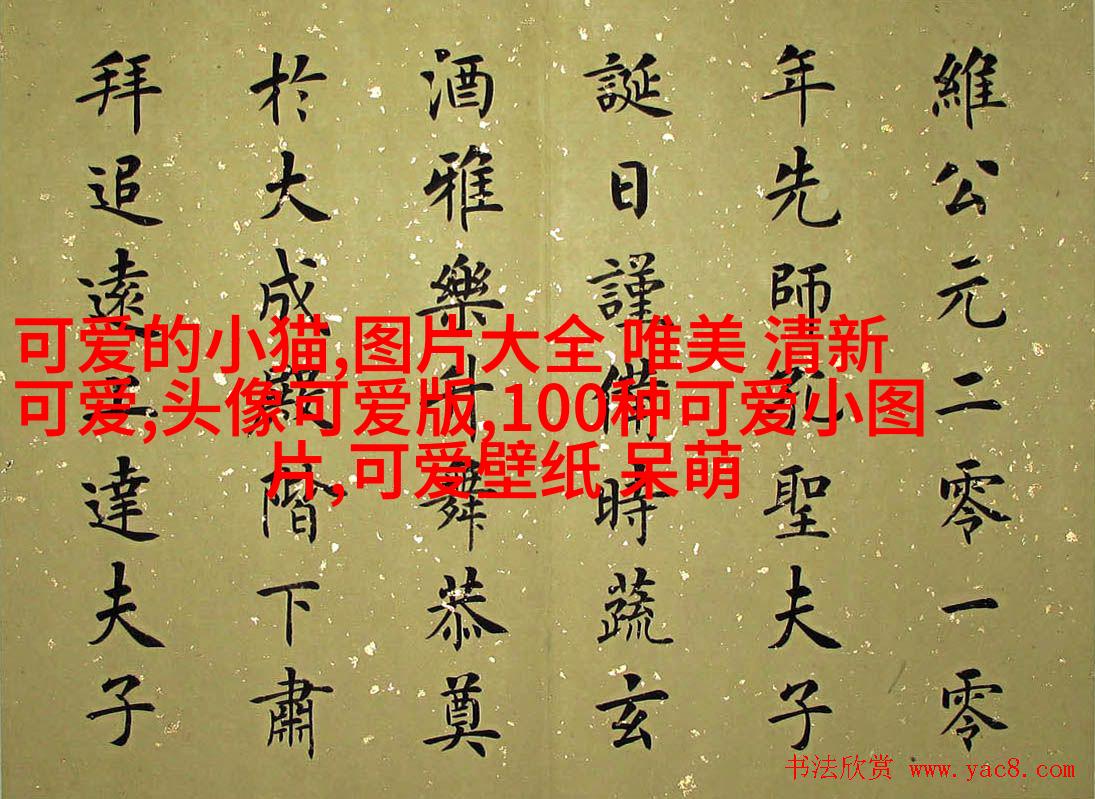 維公元二零一零
年先師孔聖夫子
誕日謹備時蔬玄
酒雅樂升舞恭奠
於大成殿階下肅
拜追遠達夫子
可爱的小猫,图片大全 唯美 清新
可爱,头像可爱版,100种可爱小图
片,可爱壁纸 呆萌
书法欣赏 www.yac8.com